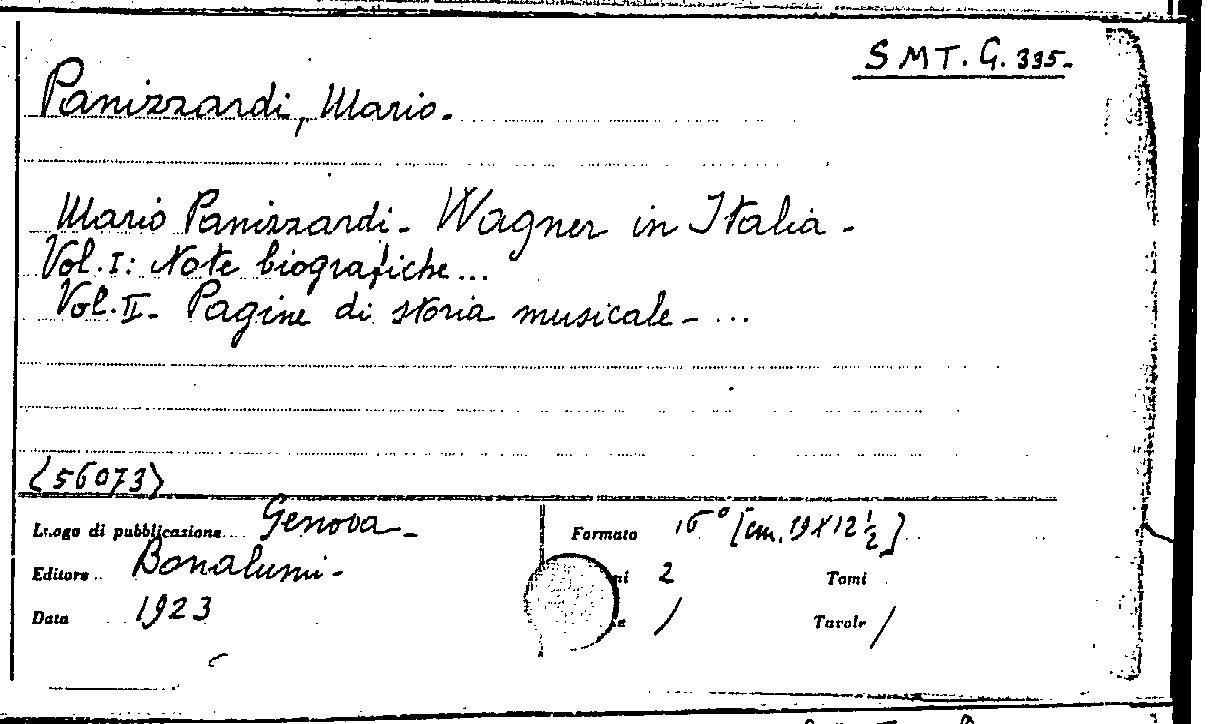 SMT. G. 335-
Panizzardi, Mario.
Mario Panizzardi - Wagner in Italia -
Vol. I: Note biografiche...
Vol. II - Pagine di storia musicale - ...
<56073>
Luogo di pubblicazione Genova - Formato 16° [cm. 19X12 1/2]
Editore Bonalumi - 2 Tomi
Data 1923 / Tavole /